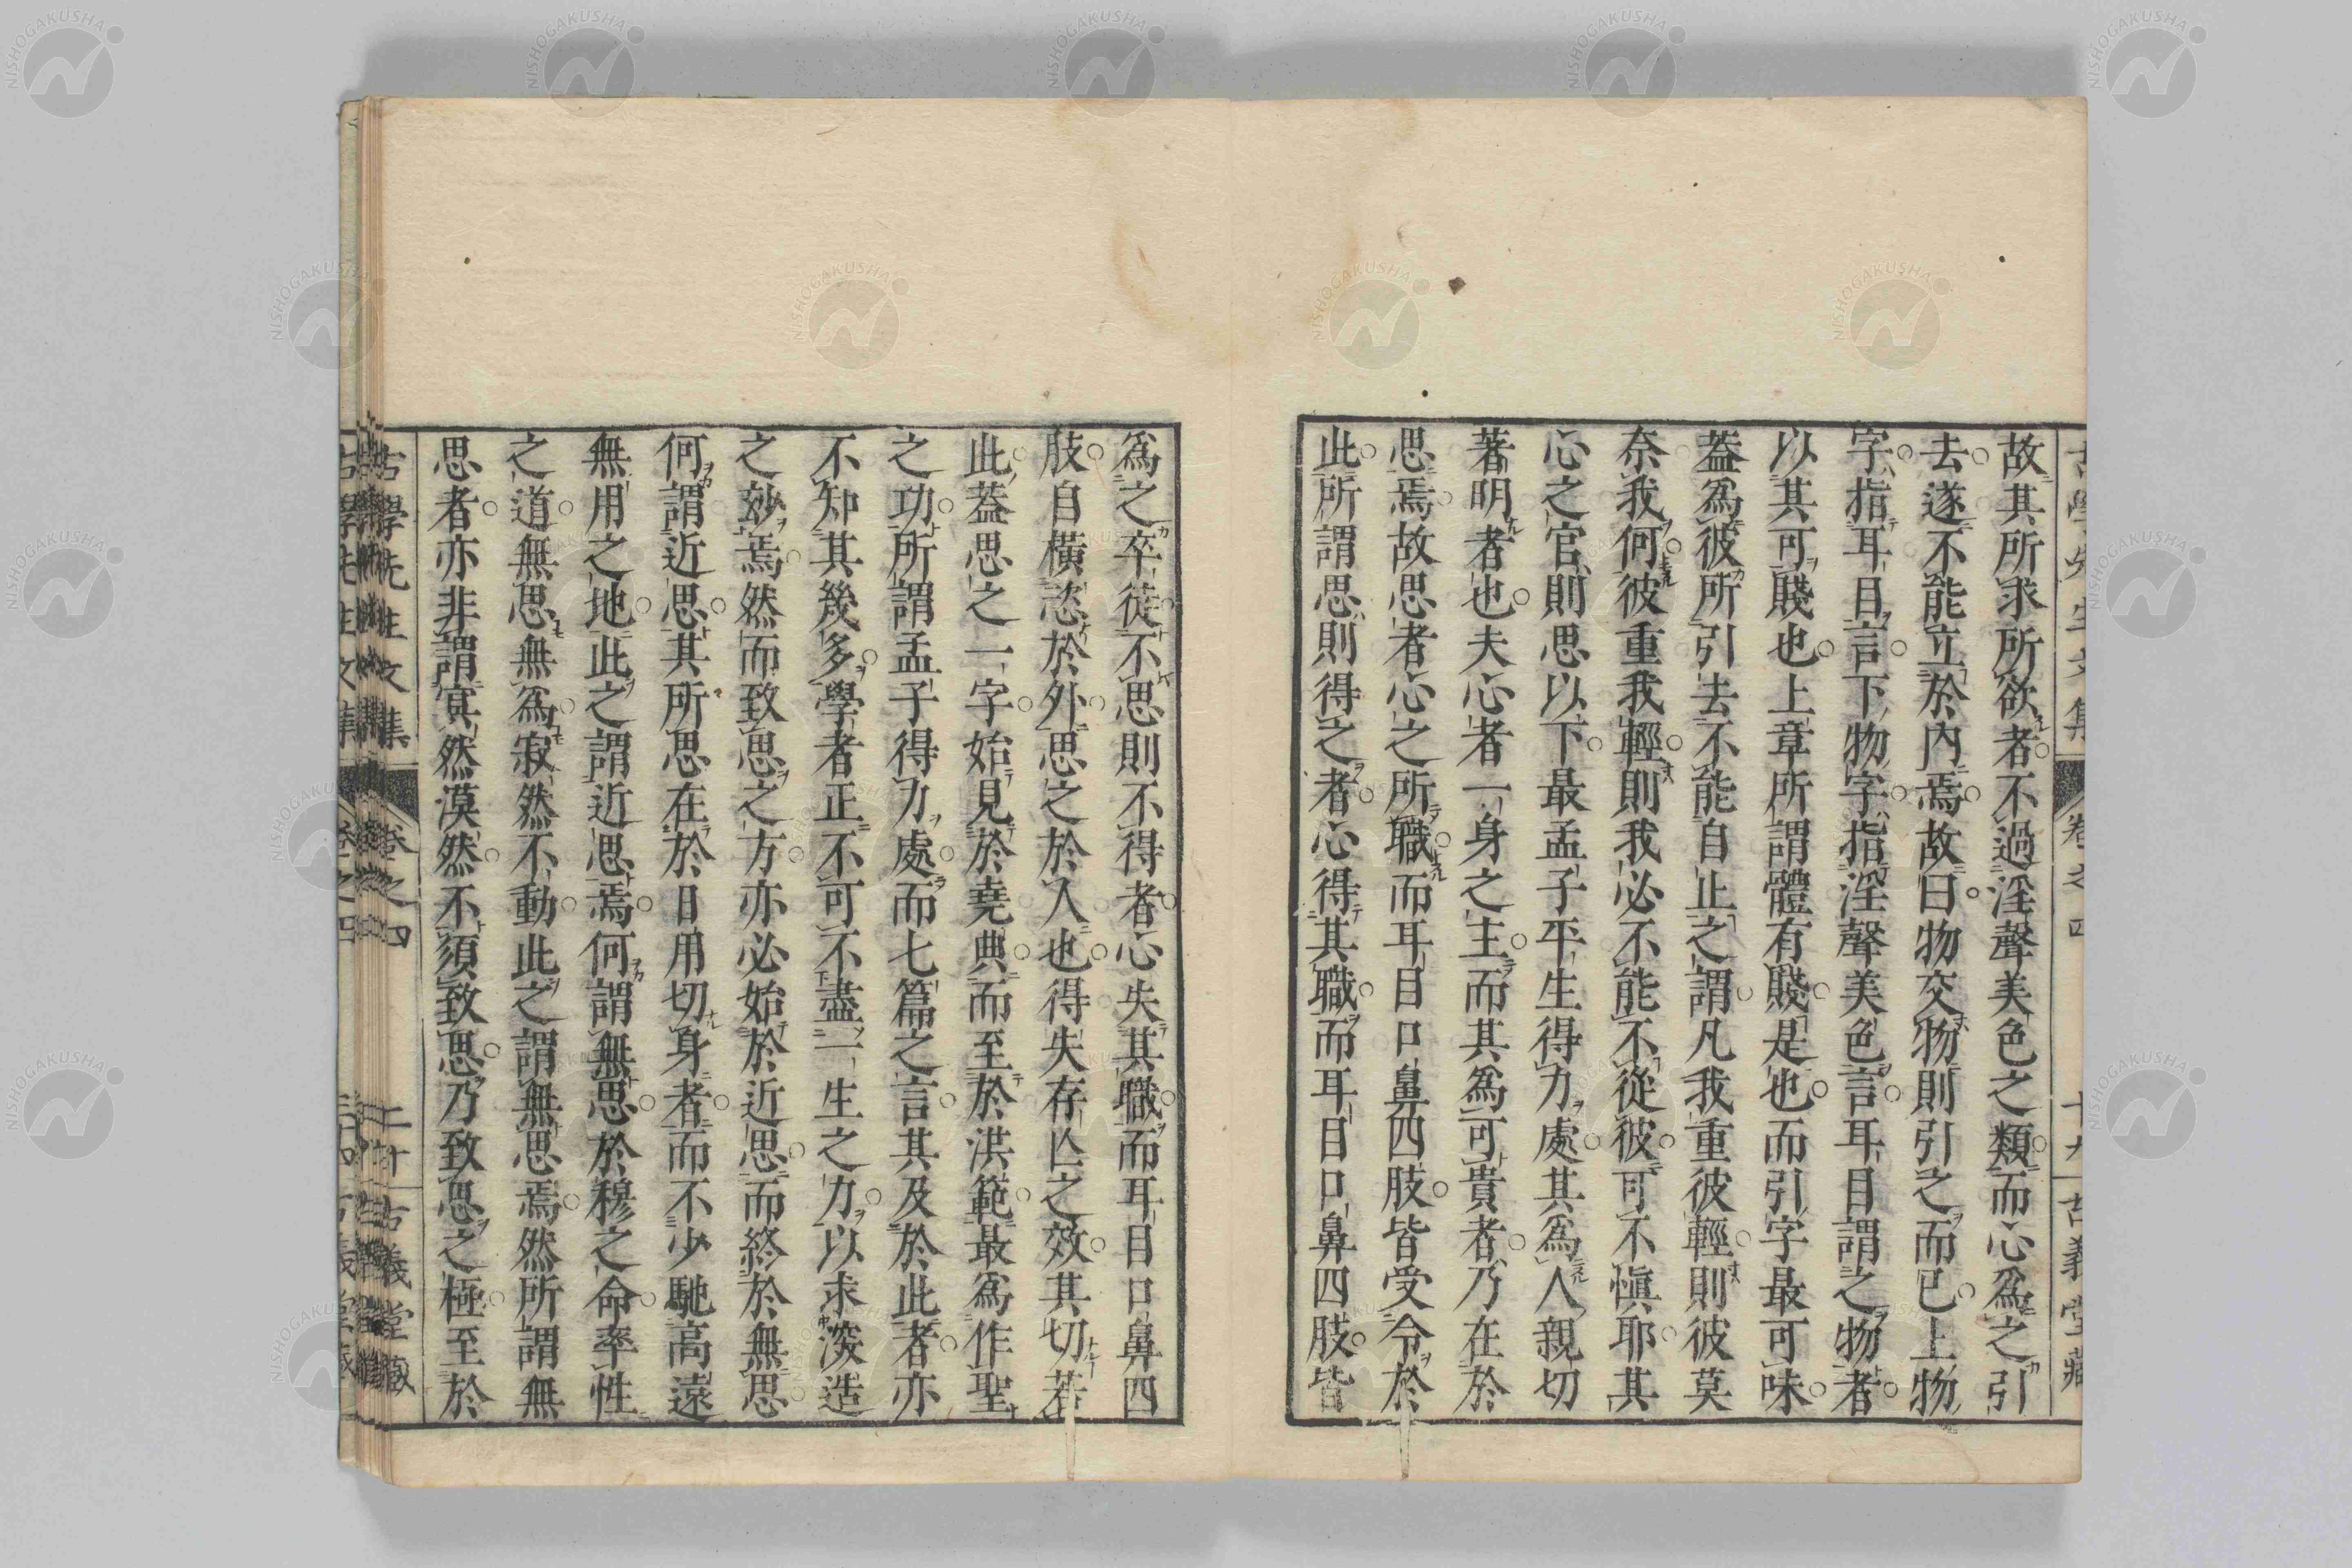 古學先生文集 卷之四 十九 古義堂藏
故其所求所欲者不過淫聲美色之類而心爲之引
去遂不能立於内焉故曰物交物則引之而已上物
字指耳目言下物字指淫聲美色言耳目謂之物者
以其可賤也上章所謂體有賤是也而引字最可味
蓋爲彼所引去不能自止之謂凡我重彼輕則彼莫
奈我何彼重我輕則我必不能不從彼可不愼耶其
心之官則思以下最孟子平生得力處其爲人親切
著明者也夫心者一身之主而其爲可貴者乃在於
思焉故思者心之所職而耳目口鼻四肢皆受令於
此所謂思則得之者心得其職而耳目口鼻四肢皆
爲之卒徒不思則不得者心失其職而耳目口鼻四
肢自橫恣於外思之於人也得失存亾之效其切若
此蓋思之一字始見於堯典而至於洪範最爲作聖
之功所謂孟子得力處而七篇之言其及於此者亦
不知其幾多學者正不可不盡一生之力以求深造
之玅焉然而致思之方亦必始於近思而終於無思
何謂近思其所思在於日用切身者而不少馳高遠
無用之地此之謂近思焉何謂無思於穆之命率性
之道無思無爲寂然不動此之謂無思焉然所謂無
思者亦非謂寘然漠然不須致思乃致思之極至於
古學先生文集 卷之四 二十 古義堂藏